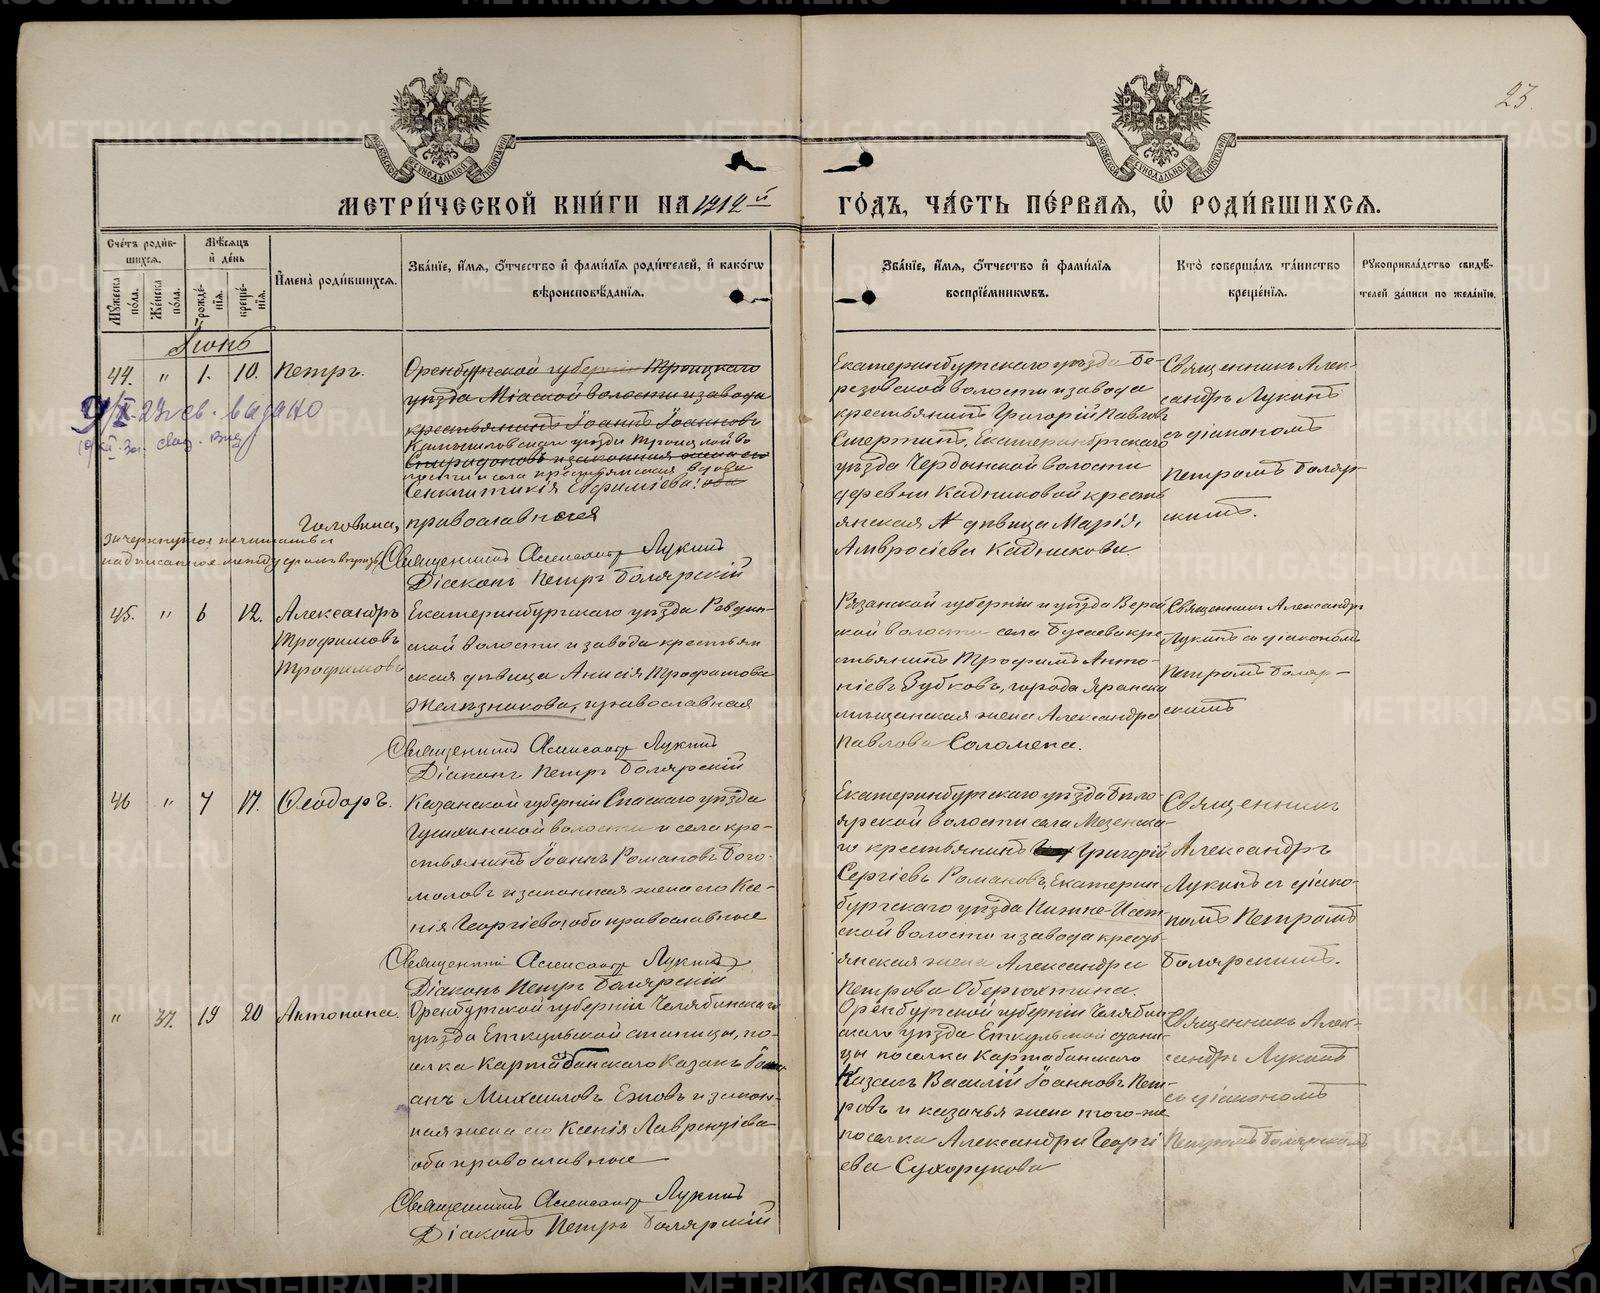 23.
МЕТРИ́ЧЕСКОЙ КНИ́ГИ НА 1912й
ГО́ДЪ, ЧА́СТЬ ПЕ́РВАЯ, Ѡ РОДИ́ВШИХСЯ.
Сче́тъ роди́в-
шихся.
Мѣ́сяцъ
и де́нь
Мꙋ́жеска по́ла.
Же́нска по́ла.
рожде́-нїя.
креще́-нїя.
И́мена̀ роди́вшихся.
Зва́нїе, и́мя, о́тчество и фами́лїя роди́телей, и како́гѡ
вѣроисповѣ́данїя.
Зва́нїе, и́мя, о́тчество и фами́лїя
воспрїе́мникѡвъ.
Кто̀ соверша́лъ та́инство
креще́нїя.
Рꙋкоприкла́дство свидѣ́-
телей за́писи по жела́нїю.
Іюнь
44. " 1. 10. Петръ.
Оренбургской губерніи Троицкаго
уѣзда Міасской волости и завода
крестьянинъ Іоаннъ Іоанновъ
Камышловскаго уѣзда
Спиридоновъ и законная жена его
и села крестьянская вдова
Сенклитикія Евфиміева: оба
Головина, православная
зачеркнутое не читать а
надписанное между строкъ
Священникъ Александръ Лукинъ
Діаконъ Петръ Боляр­скій
Екатеринбургскаго уѣзда Бе-
резовской волости и завода
крестьянинъ Григорій Павловъ
Смертинъ, Екатеринбургскаго
уѣзда
деревни Кадниковой кресть
янская дѣвица Марія
Амвросіева Кадникова
Священникъ Алек-
сандръ Лукинъ
съ діакономъ
Петромъ Боляр-
скимъ.
45. " 6 12. Александръ
Трофимовъ
Трофимовъ
Екатеринбургскаго уѣзда Ревдин-
ской волости и завода крестьян
ская дѣвица Анисія Трофимова
Желѣзникова, православная
Священникъ Александръ Лукинъ
Діаконъ Петръ Болярскій
Рязанской губерніи и уѣзда
ской волости села Бусаева кре
стьянинъ Трофимъ Анто-
ніевъ Зубковъ, города Яранска
мѣщанская жена Александра
Павлова Соломена.
Священникъ Александръ
Лукинъ съ діакономъ
Петромъ Боляр-
скимъ
46 " 7 17. Ѳеодоръ.
Казанской губерніи Спасскаго уѣзда
волости и села кре-
стьянинъ Іоаннъ Романовъ Бого-
моловъ и законная жена его Ксе-
нія Георгіева: оба православные
Священникъ Александръ Лукинъ
Діаконъ Петръ Болярскій
Екатеринбургскаго уѣзда Бѣло-
ярской волости села Мезенска-
го крестьянинъ Григорій
Сергіевъ Романовъ, Екатерин-
бургскаго уѣзда Нижне-Исет
ской волости и завода кресть-
янская жена Александра
Петрова Оберюхтина.
Священникъ
Александръ
Лукинъ съ діако-
номъ Петромъ
Болярскимъ.
" 37. 19 20 Антонина.
Оренбургской губерніи Челябинскаго
уѣзда Еткульской станицы, по-
селка Картабанскаго Казакъ Іоан
Михаиловъ Ежовъ и закон-
ная жена его Ксенія Лаврентіева
оба православные
Священникъ Александръ Лукинъ
Діаконъ Петръ Болярскій
Оренбургской губерніи Челябин
скаго уѣзда Еткульской стани-
цы поселка Картабанскаго
Казакъ Василій Іоанновъ Пет-
ровъ и казачья жена того-же
поселка Александра Георгі
ева Сухорукова
Священникъ Алек-
сандръ Лукинъ
съ діакономъ
Петромъ Болярскимъ